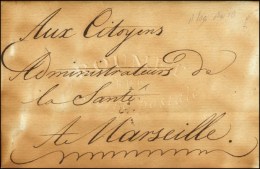 Aux Citoyens
Administrateurs de
la Santé
A Marseille.